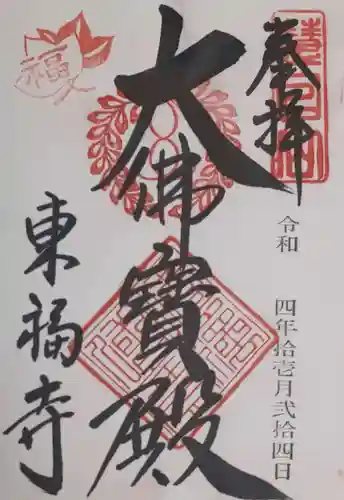 奉拝
令和 四年拾壱月弐拾四日
大佛寳殿
東福寺
福